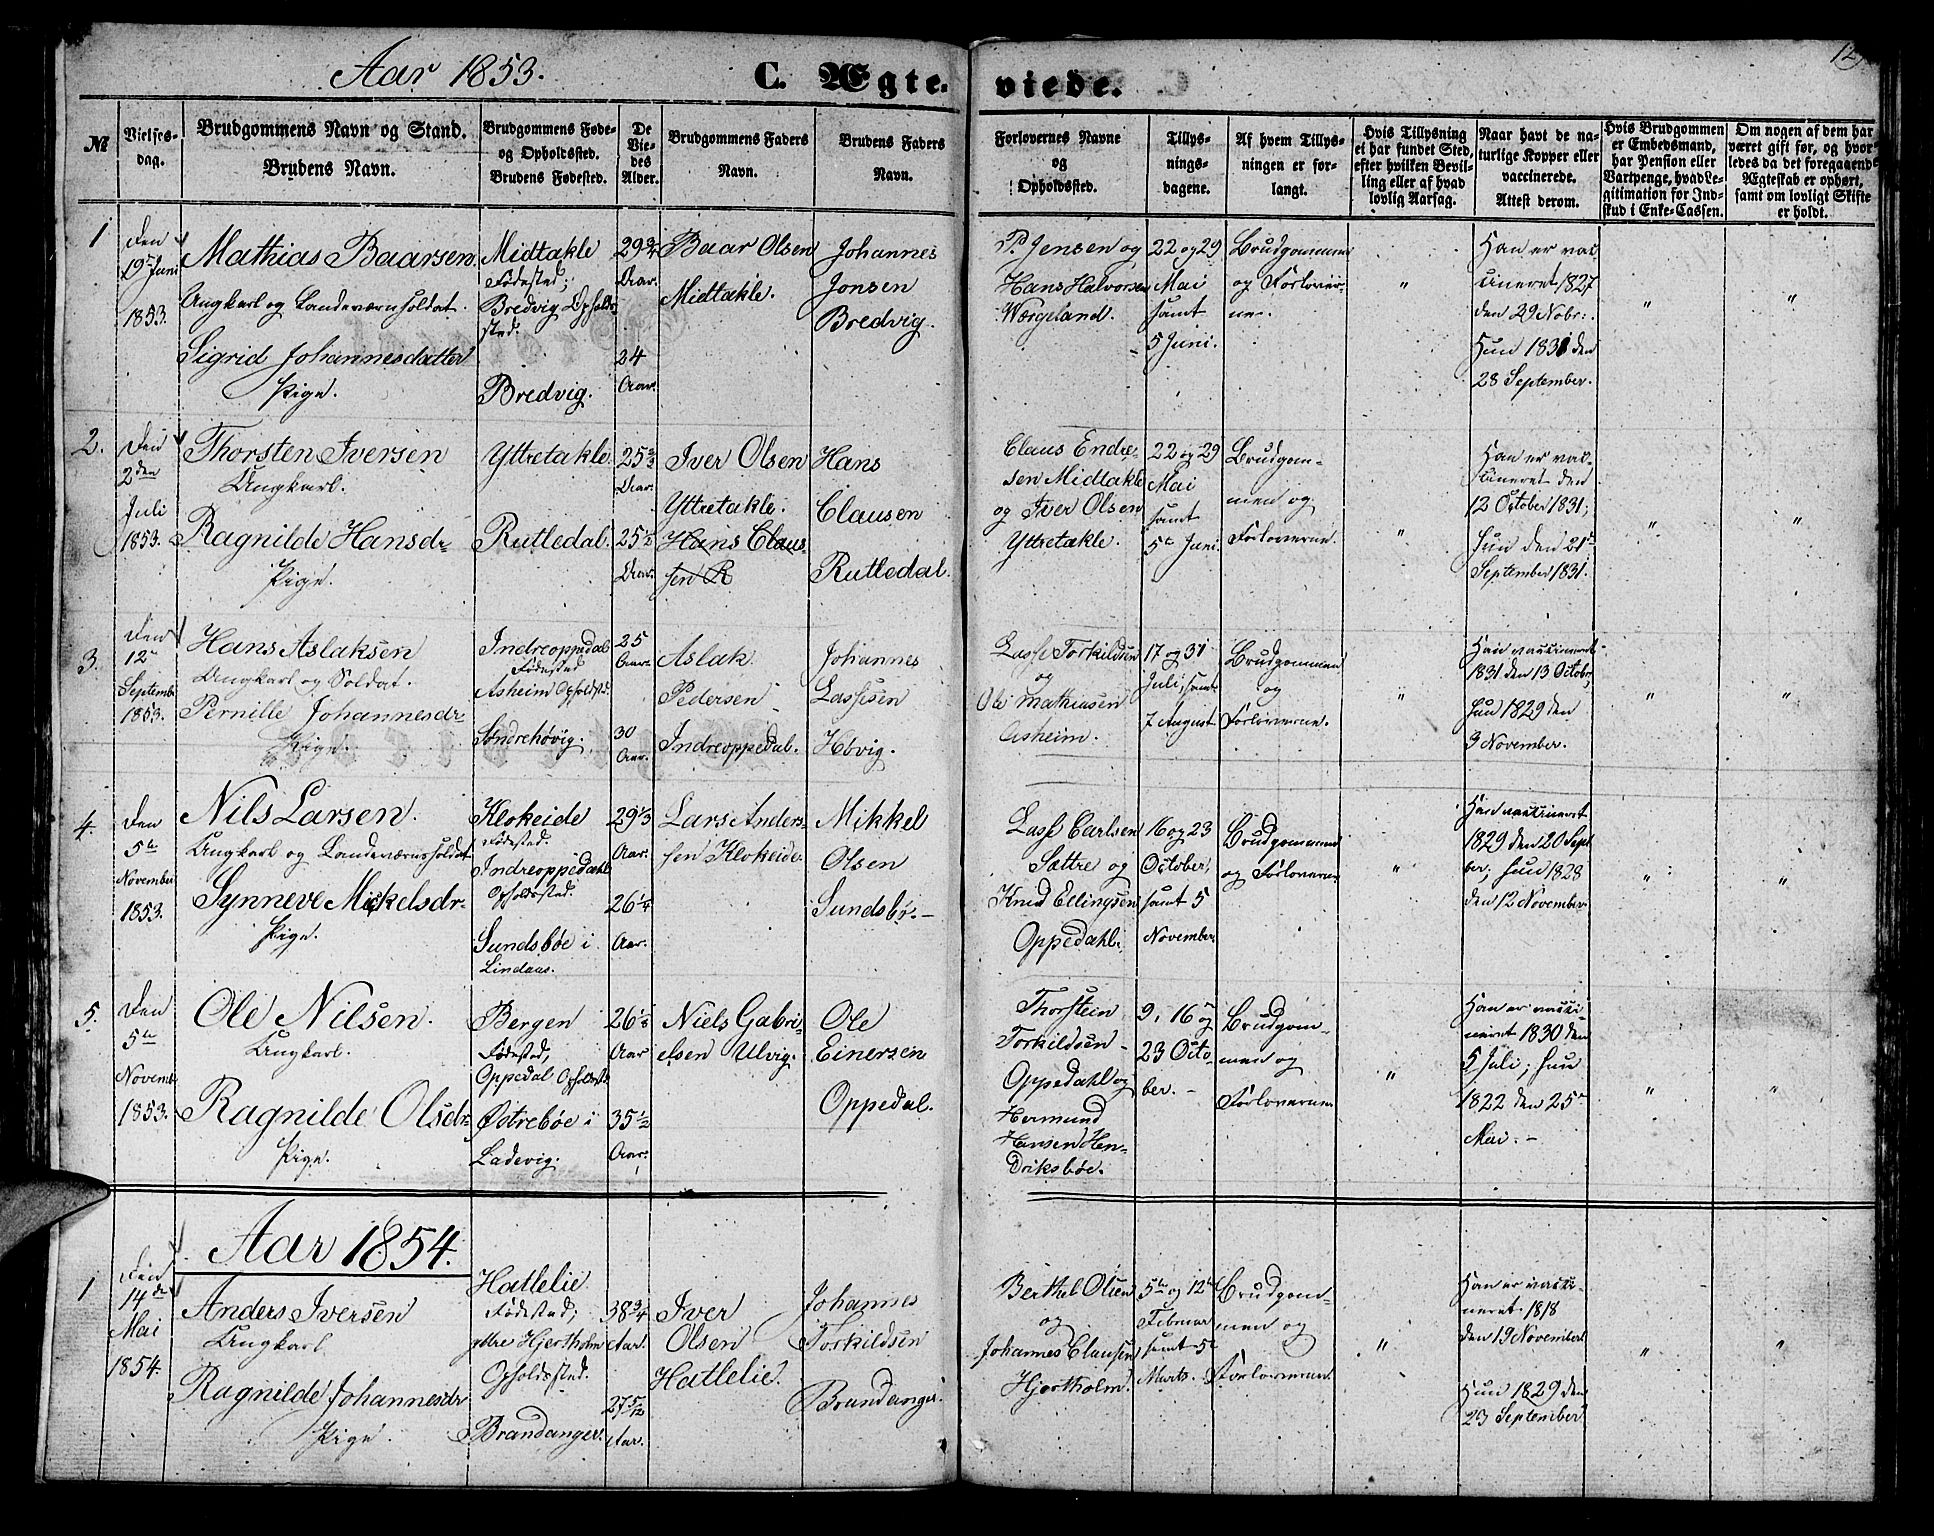 Aar 1853.
C. Ægte-
viede.
№
Vielses-
dag.
Brudgommens Navn og Stand.
Brudens Navn.
Brudgommens Føde-
og Opholdssted.
Brudens Fødested.
De
Vie-
des
Alder.
Brudgommens Faders
Navn.
Brudens Faders
Navn.
Forlovernes Navne
og
Opholdssted.
Tillys-
nings-
dagene.
Af hvem Tillys-
ningen er for-
langt.
Hvis Tillysning
ei har fundet Sted
efter hvilken Bevil-
ling eller af hvad
lovlig Aarsag.
Naar havt de na-
turlige Kopper eller
vaccinerede.
Attest derom.
Hvis Brudgommen
er Embedsmand,
har Pension eller
Vartpenge, hvad Le-
gitimation for Ind-
skud i Enke-Cassen.
Om nogen af dem har
været gift før, og hvor-
ledes da det foregaaend
Ægteskab er ophørt,
samt om lovligt Skifte
er holdt.
1
Den
19de Juni
1853.
Mathias Baarsen
Ungkarl og Landeværnssoldat.
Sigrid Johannesdatter
Pige.
Midtakle
Fødested;
Bredvig Opholds-
sted.
Bredvig.
29 3/4
Aar.
24
Aar.
Baar Olsen
Midtakle.
Johannes
Jonsen
Bredvig.
P. Jensen og
Hans Halvorsen
Wærgeland.
22 og 29
Mai
samt
5 Juni.
Brudgommen
og Forlover-
ne.
"
Han er vac-
cineret 1827
den 29 Nobr.:
Hun 1831 den
28 September.
"
"
2.
Den
2den
Juli
1853.
Thorsten Iversen
Ungkarl.
Ragnilde Hansdr
Pige.
Yttretakle
Rutledal.
25 2/3
Aar.
25 1/2
Aar.
Iver Olsen
Yttretakle.
Hans Claus
sen R
Hans
Clausen
Rutledal.
Claus Endre-
sen Midtakle
og Iver Olsen
Yttretakle.
22 og 29
Mai
samt
5te Juni.
Brudgom-
men og
Forloverne.
"
Han er vac-
cineret den
12 October 1831;
Hun den 21de
September 1831.
"
"
3.
Den
12te
Septembr
1853.
Hans Aslaksen
Ungkarl og Soldat.
Pernille Johannesdr
Pige.
Indreoppedal
Fødested
Asheim Opholdsted.
Søndrehøvig.
25
Aar.
30
Aar.
Aslak
Pedersen
Indreoppedal.
Johannes
Lassesen
Høvig.
Lasse Torkildsen
og
Ole Mathiasen
Asheim.
17 og 31
Juli, samt
7 August
Brudgommen
og
Forloverne.
"
Han vaccineret
1831 den 13 Octobr;
Hun 1829 den
3 November.
"
"
4.
Den
5te
November
1853.
Nils Larsen.
Ungkarl og Landeværnssoldat
Synneve Mickelsdr
Pige.
Klokeide
Fødested.
Indreoppedahl
Opholdssted.
Sundsbøe i
Lindaas.
29 1/3
Aar.
26 1/4
Aar.
Lars Anders-
sen Klokeide.
Mikkel
Olsen
Sundsbø.
Lasse Carlsen
Sættre og
Knud Ellingsen
Oppedahl.
16 og 23
October,
samt 5
November.
Brudgommen
og Forloverne.
"
Han vaccineret
1829 den 20 Sept
ber; hun 1828
den 12 November.
"
"
5.
Den
5te
Novembr
1853.
Ole Nilsen.
Ungkarl.
Ragnilde Olsdr
Pige.
Bergen
Fødested,
Oppedal Opholdsted.
Østrebøe i
Ladevig.
Aar
35 1/2
Aar.
Niels Gabri-
elsen Ulvig.
Ole
Einersen
Oppedal.
Thorstein
Torkildsen
Oppedahl og
Hermund
Hansen Hen-
driksbøe.
9, 16 og
23 Octo-
ber.
Brudgom-
men og
Forloverne
"
Han er vacci-
neret 1830 den
5 Juli; hun
1822 den 25de
Mai.
"
"
Aar 1854.
1
Den
14de
Mai
1854.
Anders Iversen
Ungkarl.
Ragnilde Johannesdr
Pige.
Hatlelie
Fødested;
ydre Hjortholm
Opholdssted.
Brandanger.
38 3/4
Aar.
27 5/12
Aar.
Iver
Olsen
Hatlelie.
Johannes
Torkildsen
Brandanger.
Berthel Olsen
og
Johannes Clausen
Hjortholm.
5te og 12te
Februar
samt 5te
Marts.
Brudgom-
men og
Forloverne.
"
Han er vacci-
neret 1818
den 19 November
Hun 1829 den
23 September
"
"